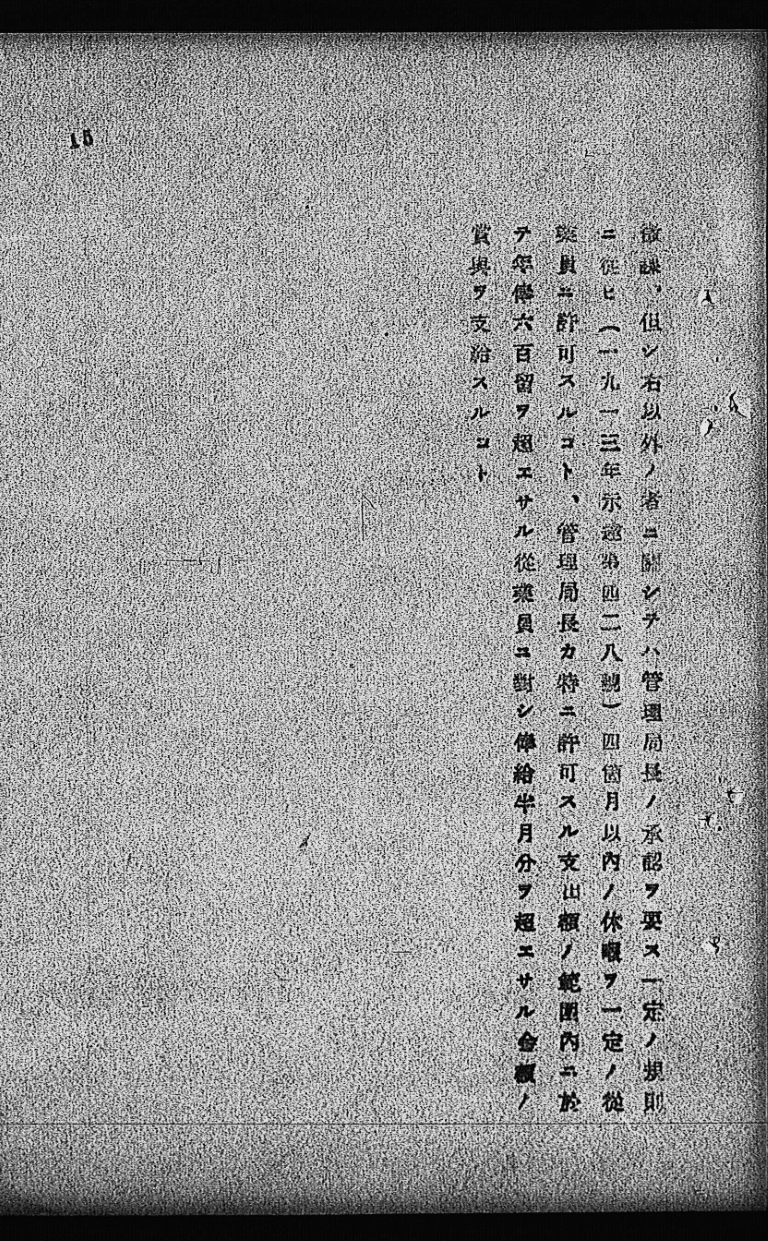 徴課、但シ右以外ノ者ニ關シテハ管理局長ノ承認ヲ要ス一定ノ規則
ニ從ヒ（一九一三年示達第四二八號）四箇月以內ノ休暇ヲ一定ノ從
業員ニ許可スルコト、管理局長カ特ニ許可スル支出額ノ範圍內ニ於
テ年俸六百留ヲ超エサル從業員ニ對シ俸給半月分ヲ超エサル金額ノ
賞與ヲ支給スルコト
15